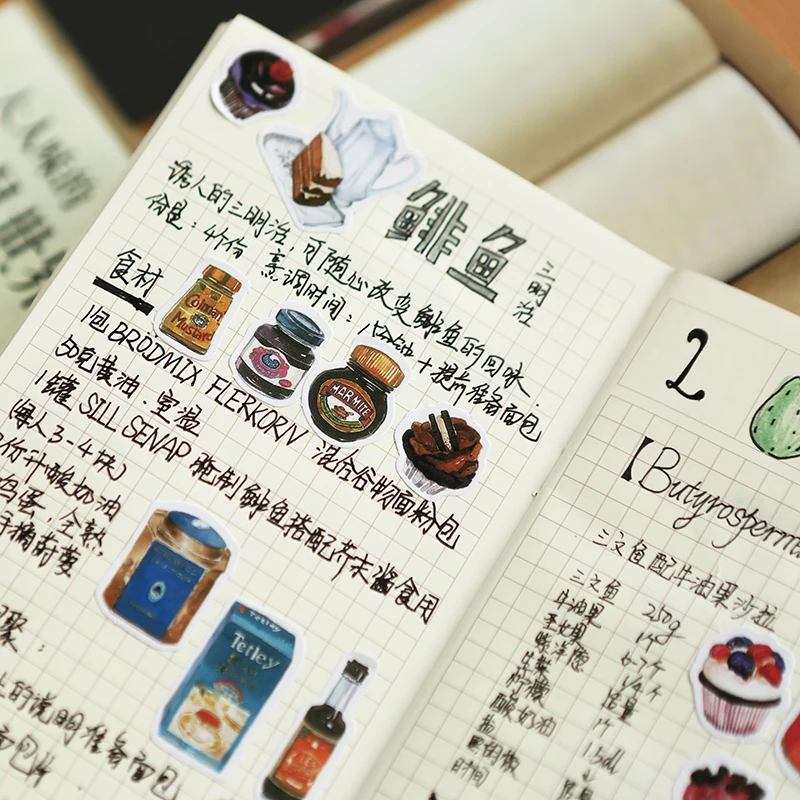 鲱鱼
三明治
诱人的三明治,可随心改变鲱鱼的口味.
份量:4人份 烹调时间: 分钟+提前准备面包
食材
1包 BRÖDMIX FLERKORN 混合谷物面粉包
50克黄油.室温
1罐 SILL SENAP 腌制鲱鱼搭配芥末酱食用
(每人3-4块)
分升酸奶油
鸡蛋,全熟
手摘莳萝
骤:
的说明准备面包
面包片.
Colman
Mustard
MARMITE
Tetley
Tetley
2
【Butyrosperm
三文鱼配牛油果沙拉
三文鱼 250g
牛油果 1个
6-7个
1/4个
适量
柠檬 1个
酸奶油 1.5dl
盐
黑胡椒
时间